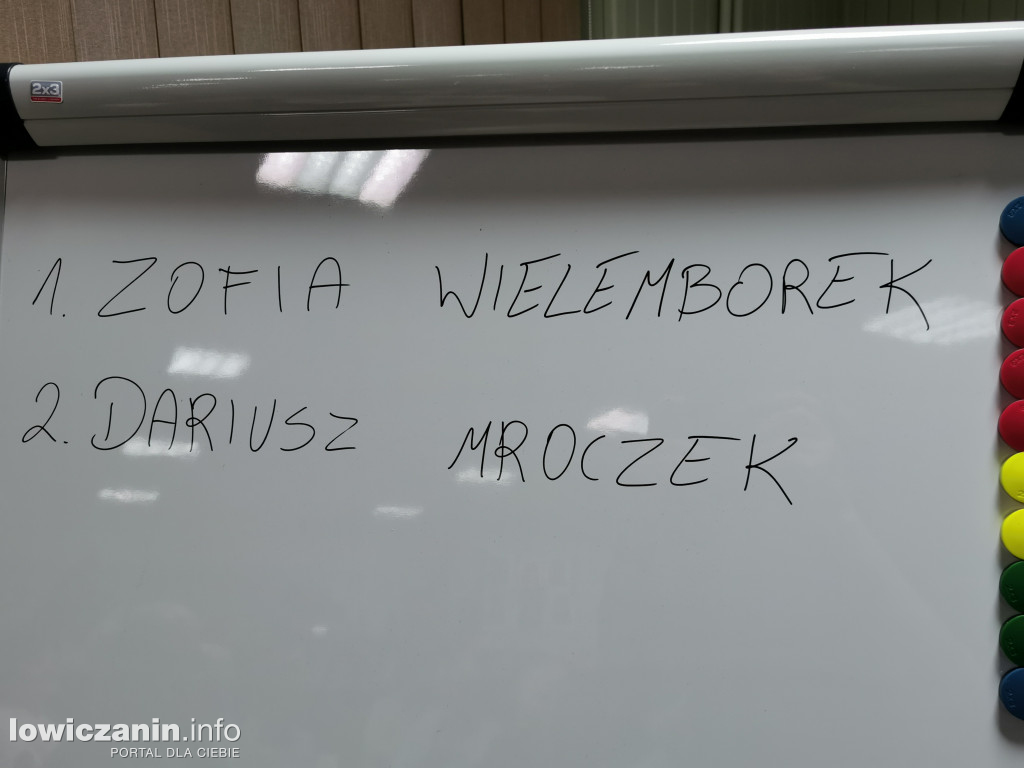 2x3
1. ZOFIA WIELEMBOREK
2. DARIUSZ MROCZEK
lowiczanin.info
PORTAL DLA CIEBIE